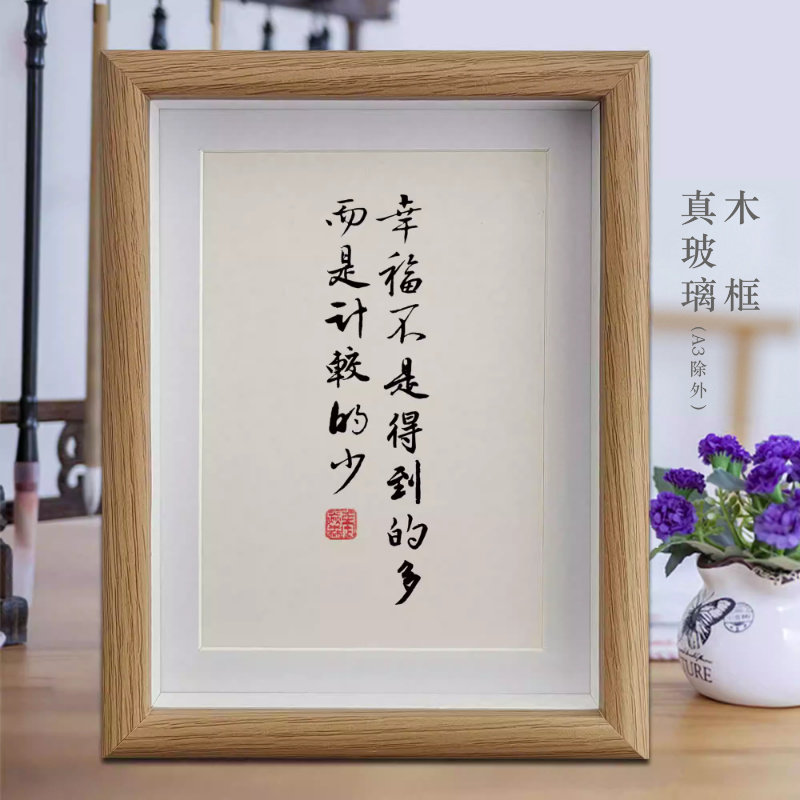 幸福不是得到的多
而是计較的少
木框
真玻璃
(A3除外)
TURE